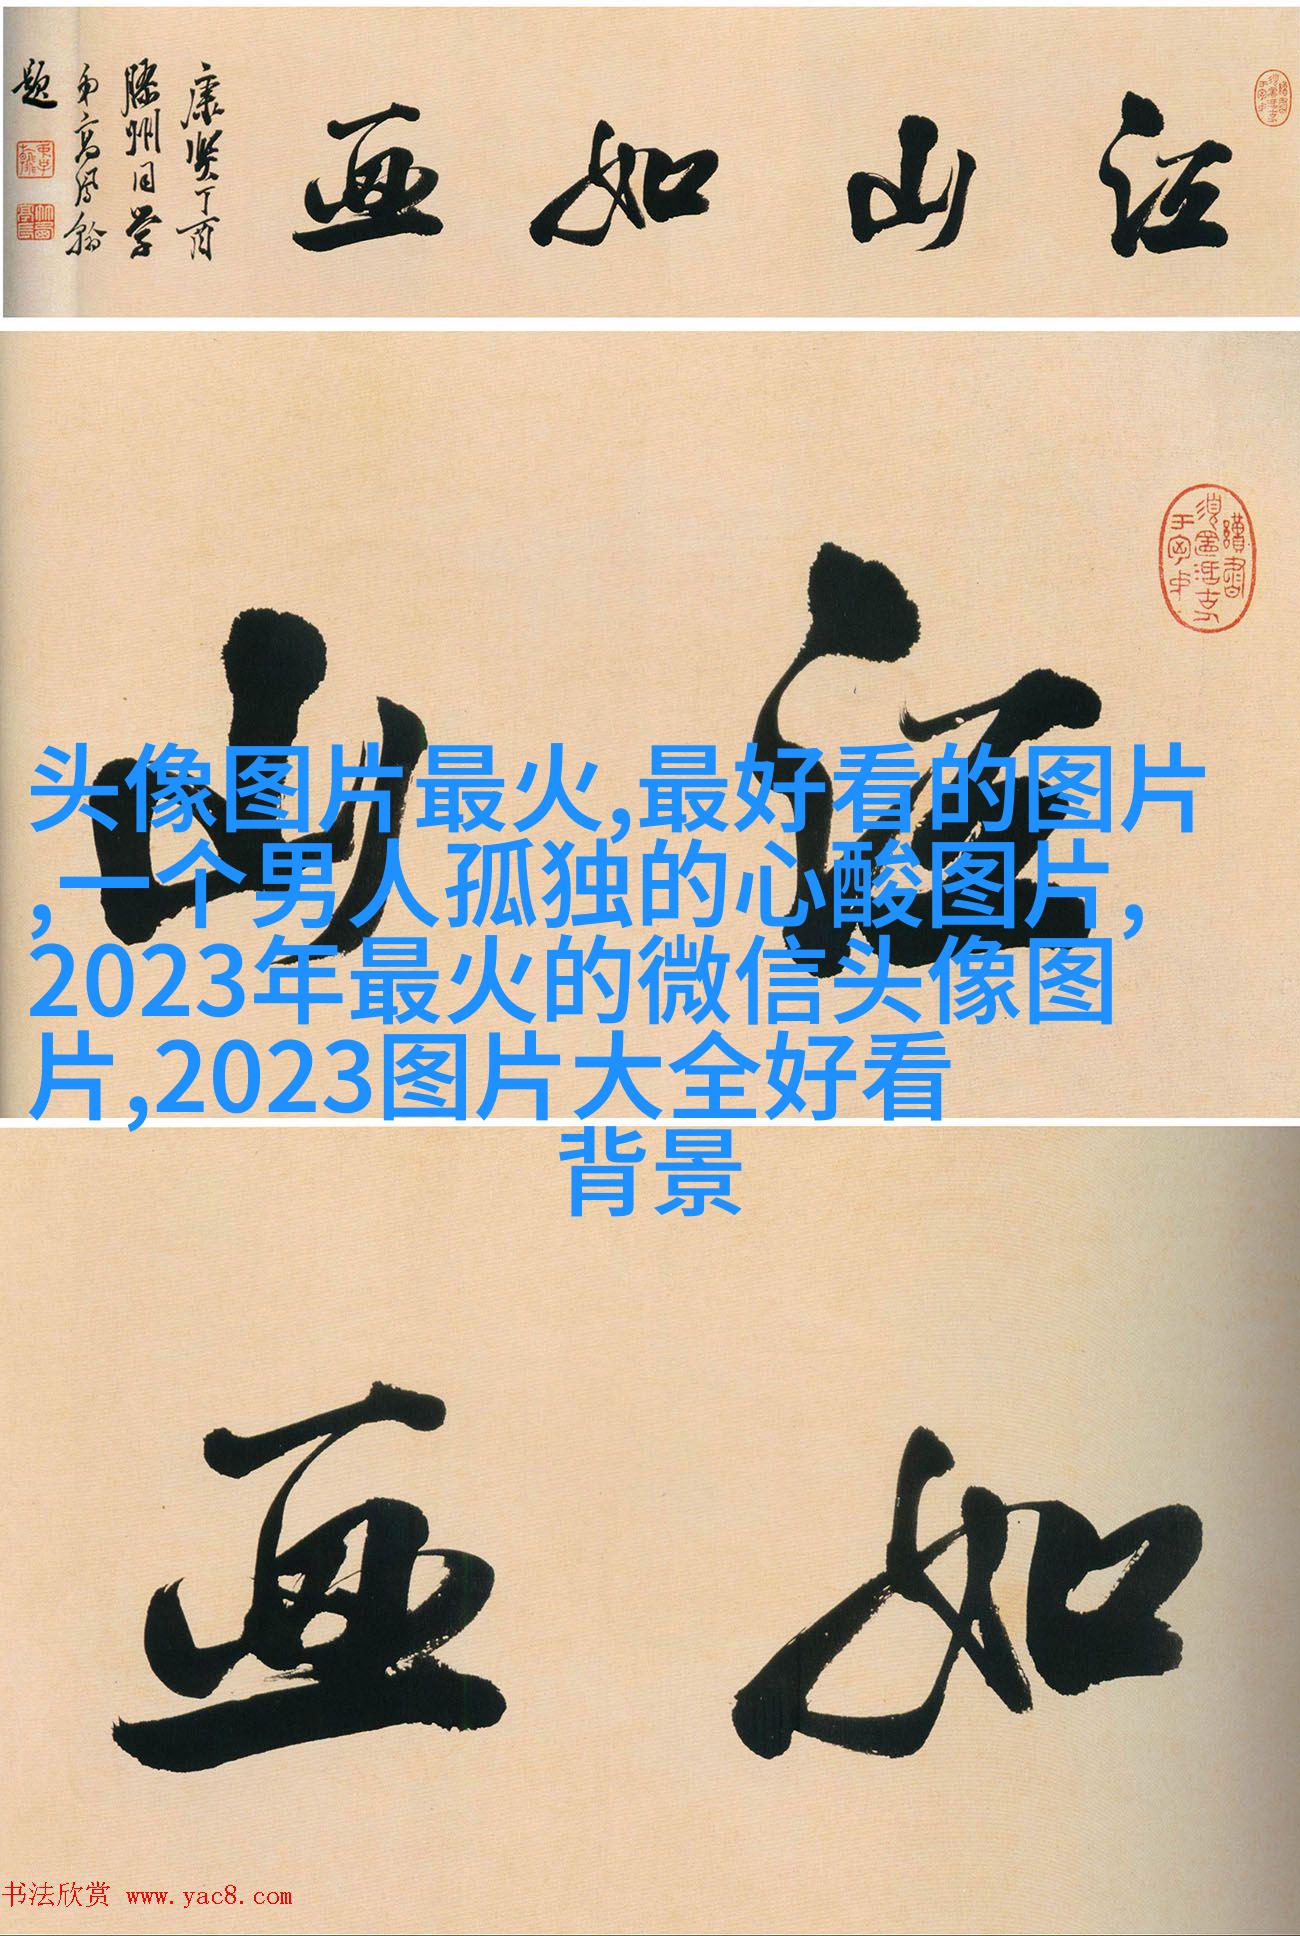 江山如画
康熙丁酉
滕州同学
弟高凤翰
题
江山
头像图片最火,最好看的图片
,一个男人孤独的心酸图片,
2023年最火的微信头像图
片,2023图片大全好看
背景
如画
书法欣赏 www.yac8.com